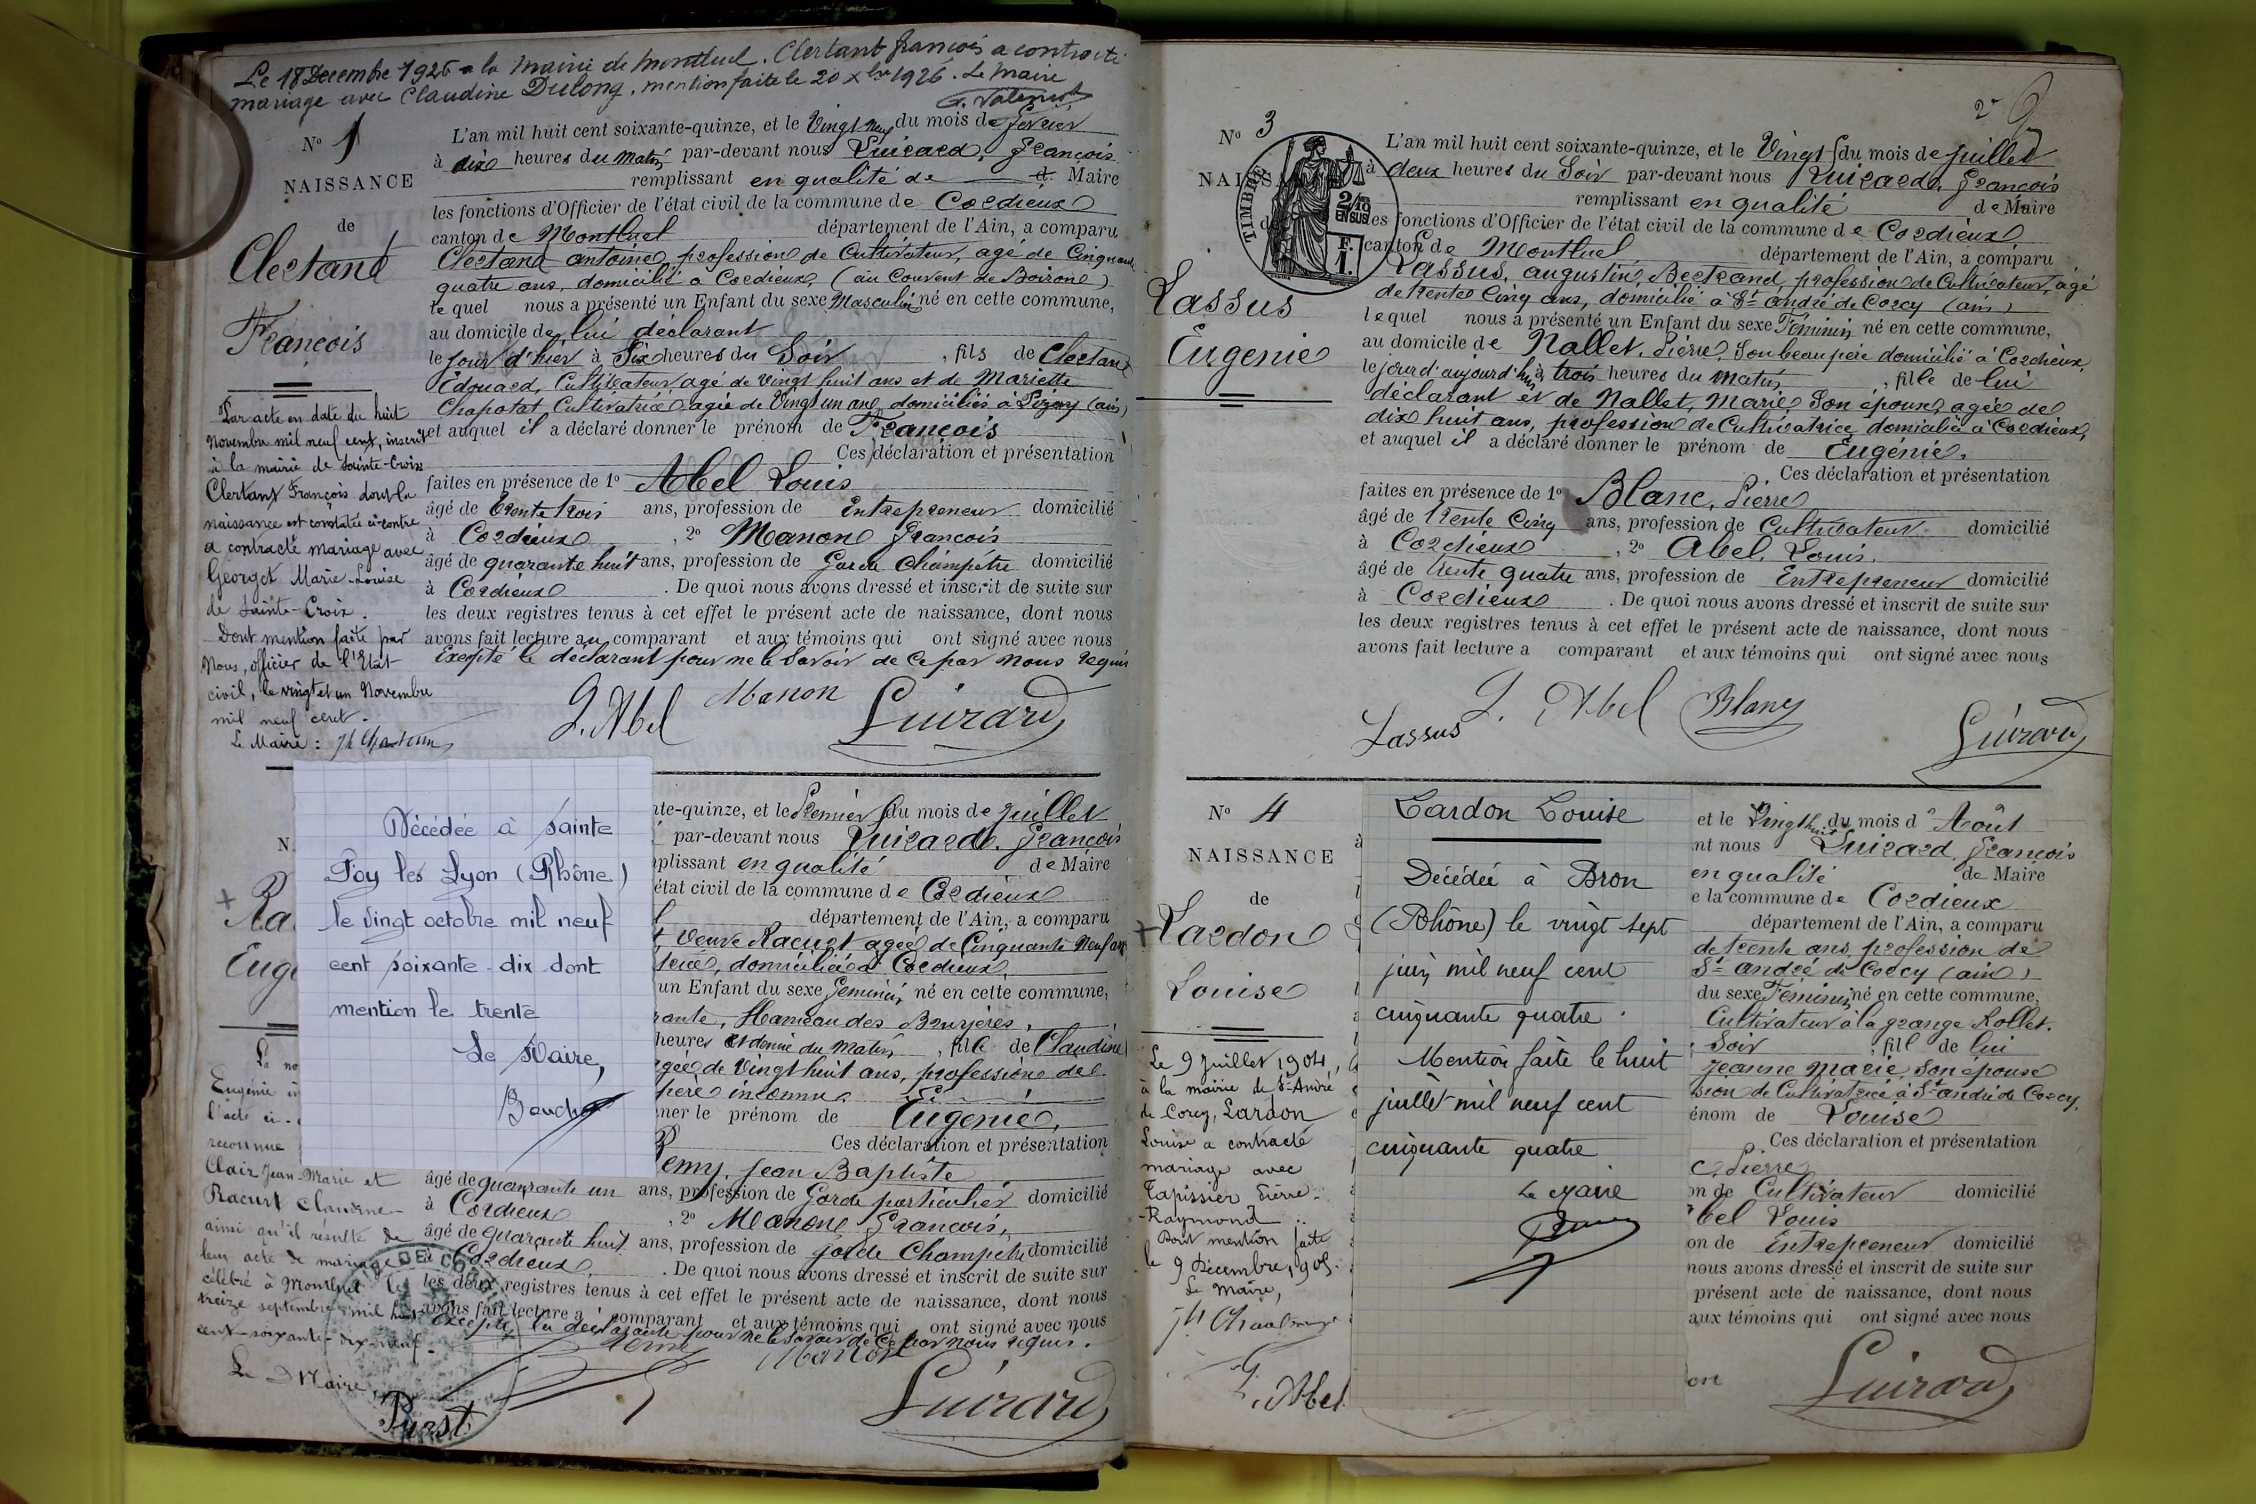 Le 18 Decembre 1926 a la Mairie de Montluel. Clertant françois a contracté
mariage avec Claudine Dulong. mention faite le 20 Xbre 1926. Le Maire
No 1
NAISSANCE
de
Clertant
François
Par acte en date du huit
Novembre mil neuf cent, inscrit
à la mairie de Sainte-Croix
Clertant François dont la
naissance est constatée ci-contre
a contracté mariage avec
Georget Marie-Louise
de Sainte-Croix.
Dont mention faite par
Nous, officier de l'Etat
civil, le vingt et un Novembre
mil neuf cent.
Le Maire :
L'an mil huit cent soixante-quinze, et le Vingt neuf du mois de fevrier
à dix heures du matin par-devant nous Guirard, François
remplissant en qualité de d. Maire
les fonctions d'Officier de l'état civil de la commune de Cordieux
canton de Montluel département de l'Ain, a comparu
Clertant antoine, profession de Cultivateur, agé de Cinquante
quatre ans, domicilié a Cordieux, (au Couvent de Boirone)
le quel nous a présenté un Enfant du sexe Masculin né en cette commune,
au domicile de lui déclarant
le jour d'hier à Six heures du Soir, fils de Clertant
Edouard, Cultivateur agé de Vingt huit ans et de Mariette
Chapotat, Cultivatrice agée de Vingt un ans, domiciliés à Pizay (ain)
et auquel il a déclaré donner le prénom de François
Ces déclaration et présentation
faites en présence de 1o Abel Louis
âgé de trente trois ans, profession de Entrepreneur domicilié
à Cordieux, 2o Manon François
âgé de quarante huit ans, profession de Garde Champêtre domicilié
à Cordieux. De quoi nous avons dressé et inscrit de suite sur
les deux registres tenus à cet effet le présent acte de naissance, dont nous
avons fait lecture au comparant et aux témoins qui ont signé avec nous
Excepté le déclarant pour ne le Savoir de Ce par nous requis
L. Abel Manon Guirard
N
Ra
Euge
Décédée à Sainte
Foy les Lyon (Rhône)
le vingt octobre mil neuf
cent soixante-dix dont
mention le trente
Le Maire,
La no
Eugénie
l'acte ci-
reconnue
Clair Jean-Marie et
Racurt Claudine
ainsi qu'il résulte de
leur acte de mariage
célébré à Montluel le
treize septembre mil huit
cent-soixante-dix-neuf.
Le Maire,
nte-quinze, et le Premier du mois de juillet
par-devant nous Guirard, François
mplissant en qualité de Maire
état civil de la commune de Cordieux
département de l'Ain, a comparu
t, Veuve Racurt agée de Cinquante Neuf ans
trice, domiciliée a Cordieux,
un Enfant du sexe Feminin né en cette commune,
rante, Hameau des Bruyères,
heures et demie du Matin, fille de Claudine
agée de Vingt huit ans, profession de
père inconnu
ner le prénom de Eugénie,
Ces déclaration et présentation
Remy, Jean Baptiste
âgé de quarante un ans, profession de Garde particulier domicilié
à Cordieux, 2o Manon François,
âgé de quarante huit ans, profession de garde Champêtre domicilié
à Cordieux. De quoi nous avons dressé et inscrit de suite sur
les deux registres tenus à cet effet le présent acte de naissance, dont nous
avons fait lecture a comparant et aux témoins qui ont signé avec nous
Excepté la déclarante pour ne le Savoir de Ce par nous requis.
Manon
Guirard
2
No 3
NAISSA
TIMBRE
2/10
EN SUS
F.
1.
Lassus
Eugenie
L'an mil huit cent soixante-quinze, et le Vingt du mois de juillet
à deux heures du Soir par-devant nous Guirard, François
remplissant en qualité de Maire
les fonctions d'Officier de l'état civil de la commune de Cordieux
canton de Montluel département de l'Ain, a comparu
Lassus, augustin, Bertrand, profession de Cultivateur, agé
de trente Cinq ans, domicilié à St andré de Corcy (ain)
lequel nous a présenté un Enfant du sexe Féminin né en cette commune,
au domicile de Nallet, Pierre, Son beau père domicilié à Cordieux,
le jour d'aujourd'hui à trois heures du matin, fille de lui
déclarant et de Nallet, Marie Son épouse, agée de
dix huit ans, profession de Cultivatrice domiciliée à Cordieux,
et auquel il a déclaré donner le prénom de Eugénie.
Ces déclaration et présentation
faites en présence de 1o Blanc, Pierre
âgé de trente Cinq ans, profession de Cultivateur domicilié
à Cordieux, 2o Abel, Louis,
âgé de trente quatre ans, profession de Entrepreneur domicilié
à Cordieux. De quoi nous avons dressé et inscrit de suite sur
les deux registres tenus à cet effet le présent acte de naissance, dont nous
avons fait lecture a comparant et aux témoins qui ont signé avec nous
Lassus L. Abel Blanc Guirard
No 4
NAISSANCE
de
Lardon
Louise
Le 9 Juillet 1904,
à la mairie de St-André
de-Corcy, Lardon
Louise a contracté
mariage avec
Tapissier Pierre-
-Raymond.
Dont mention faite
le 9 Décembre, 1905.
Le Maire,
L. Abel
Lardon Louise
Décédée à Bron
(Rhône) le vingt sept
juin mil neuf cent
cinquante quatre.
Mention faite le huit
juillet mil neuf cent
cinquante quatre
Le Maire
et le Vingt huit du mois d'Août
nt nous Guirard, François
en qualité de Maire
e la commune de Cordieux
département de l'Ain, a comparu
de trente ans, profession de
St andré de Corcy (ain)
du sexe Féminin né en cette commune,
Cultivateur à la grange Rollet.
Soir, fille de lui
Jeanne Marie, Son épouse
sion de Cultivatrice à St andré de Corcy,
énom de Louise
Ces déclaration et présentation
c, Pierre
on de Cultivateur domicilié
bel Louis
on de Entrepreneur domicilié
nous avons dressé et inscrit de suite sur
présent acte de naissance, dont nous
aux témoins qui ont signé avec nous
on Guirard